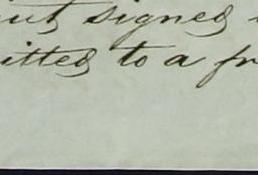 out signed
itted to a fr